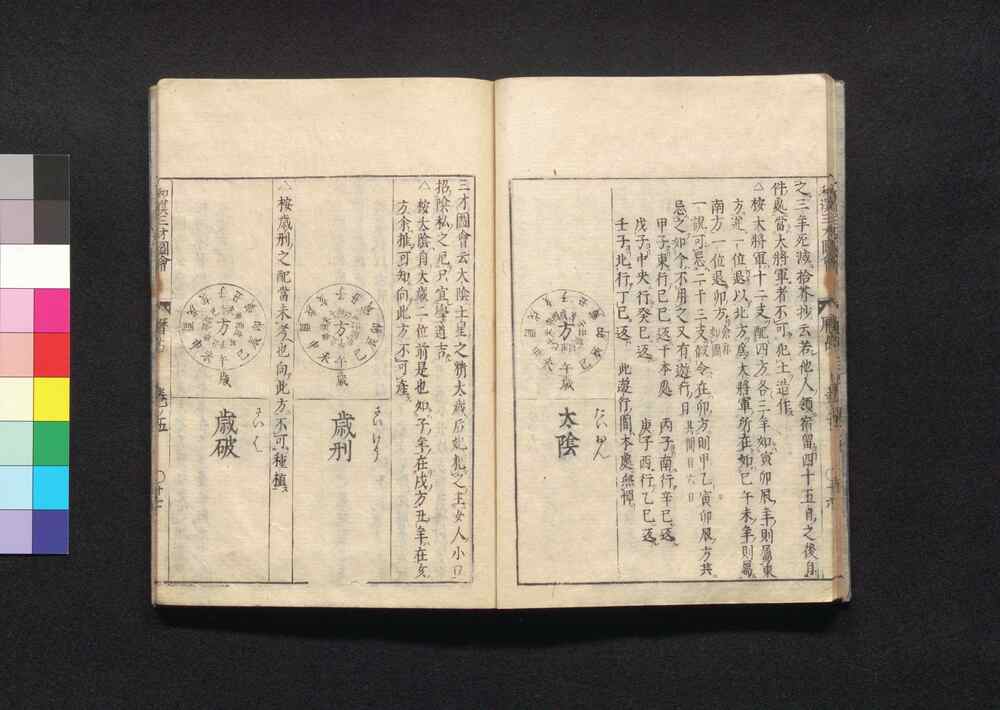 之三年死滅拾芥抄云若他人領宿留四十五日之後自
件處當大將軍者不可犯土造作
△按大將軍十二支配四方各三年如寅卯辰年則屬東
方逆一位退以北方爲大將軍所在如巳午未年則屬
南方一位退卯方
一説可忌二十三支假令在卯方則甲乙寅卯辰方共
忌之如今不用之又有遊行日
甲子東行己巳返于本處 丙子南行辛巳返
戊子中央行癸巳返 庚子西行乙巳返
壬子北行丁巳返 此遊行間本處無憚
たいおん
太陰
方
午歳
三才圖會云大陰土星之精太歳后妃犯之主女人小口
招陰私之厄只宜學道吉
△按大陰自大歳二位前是也如子年在戌方丑年在亥
方余推可知向此方不可産
さいけう
歳刑
方
午歳
△按歳刑之配當未考也向此方不可種植
さいは
歳破
方
午歳
和漢三才圖會
卷ノ五